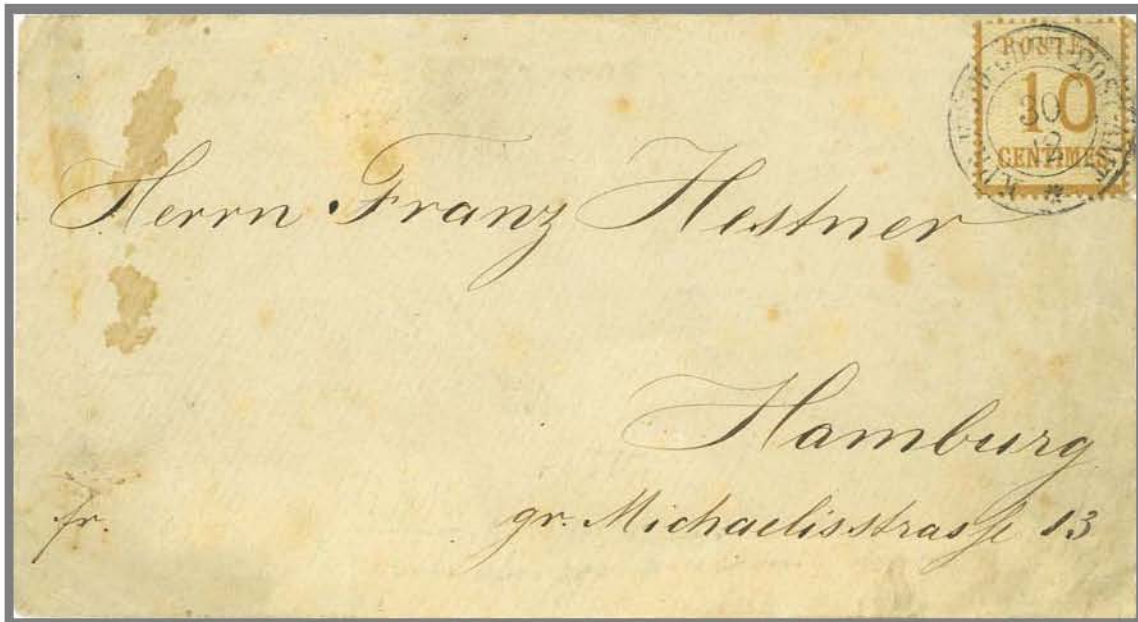 POSTES
10
CENTIMES
30
12
Herrn Franz Hestner
Hamburg
gr. Michaelisstrasse 13
fr.